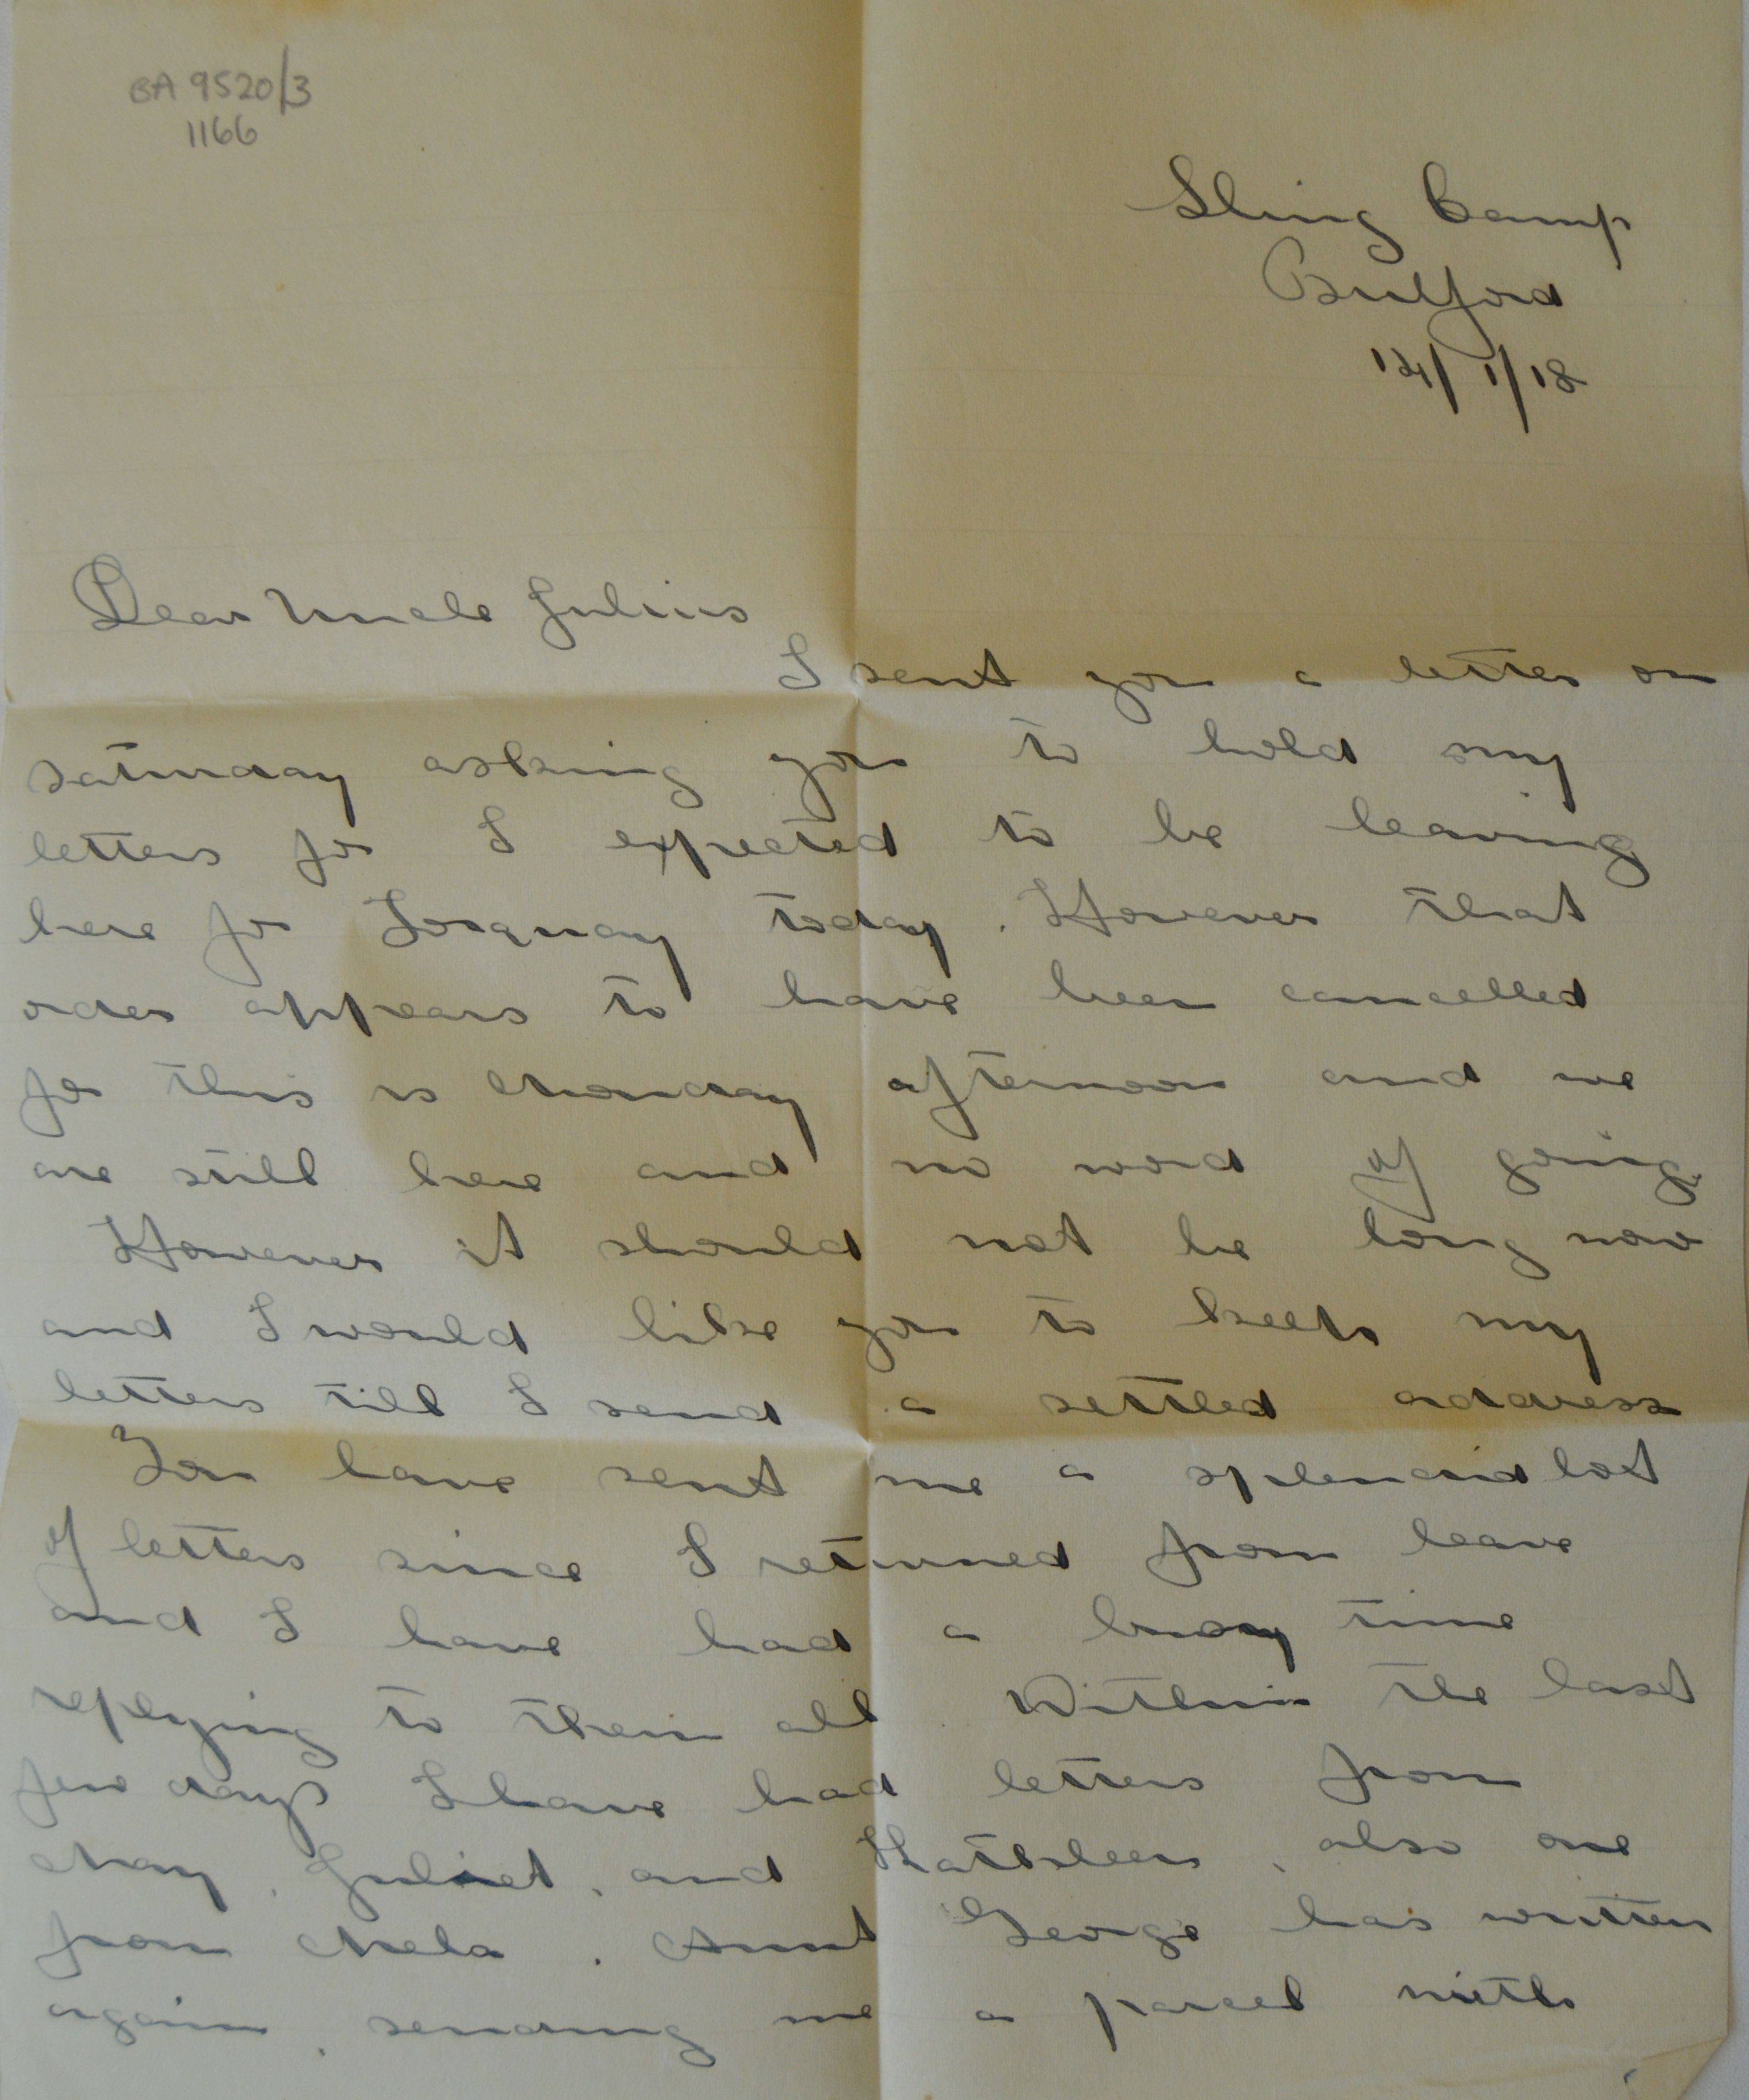 BA 9520/3
1166
Sling Camp
Bulford
14/1/18
Dear Uncle Julius
I sent you a letter on
saturday asking you to hold my
letters for I expected to be leaving
here for Torquay today. However that
order appears to have been cancelled
for this is Monday afternoon and we
are still here and no word of going.
However it should not be long now
and I would like you to keep my
letters till I send a settled address
You have sent me a splendid lot
of letters since I returned from leave
and I have had a busy time
replying to them all Within the last
few days I have had letters from
May, Juliet, and Kathleen, also one
from Mela. Aunt George has written
again, sending me a parcel with